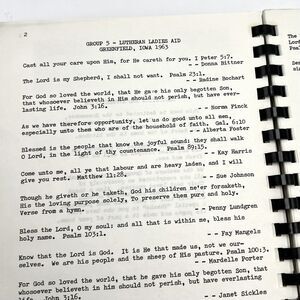 2
GROUP 5 - LUTHERAN LADIES AID
GREENFIELD, IOWA 1963
Cast all your care upon Him, for He careth for you. I Peter 5:7.
-- Donna Bittner
The Lord is my Shepherd, I shall not want. Psalm 23:1.
-- Nadine Bochart
For God so loved the world, that He gave his only begotten Son,
that whosoever believeth in Him should not perish, but have ever-
lasting life. John 3:16.
-- Norma Finck
As we have therefore opportunity, let us do good unto all men,
especially unto them who are of the household of faith. Gal. 6:10
-- Alberta Foster
Blessed is the people that know the joyful sound: they shall walk
O Lord, in the light of thy countenance. Psalm 89:15.
-- Kay Harris
Come unto me, all ye that labour and are heavy laden, and I will
give you rest. Matthew 11:28.
-- Sue Johnson
Though he giveth or he taketh, God his children ne'er forsaketh,
His the loving purpose solely, To preserve them pure and holy.
Verse from a hymn.
-- Penny Lundgren
Bless the Lord, O my soul: and all that is within me, bless his
holy name. Psalm 103:1.
-- Fay Mangels
Know that the Lord is God. It is He that made us, not we our-
selves. We are his people and the sheep of His pasture. Psalm 100:3.
-- Mardelle Porter
For God so loved the world, that he gave his only begotten Son,
that whosoever believeth in him should not perish, but have everlasting
life. John 3:16.
-- Janet Sickles